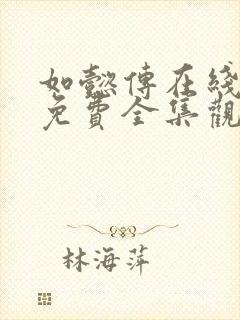 如懿傳在綫
免費全集觀
林海萍